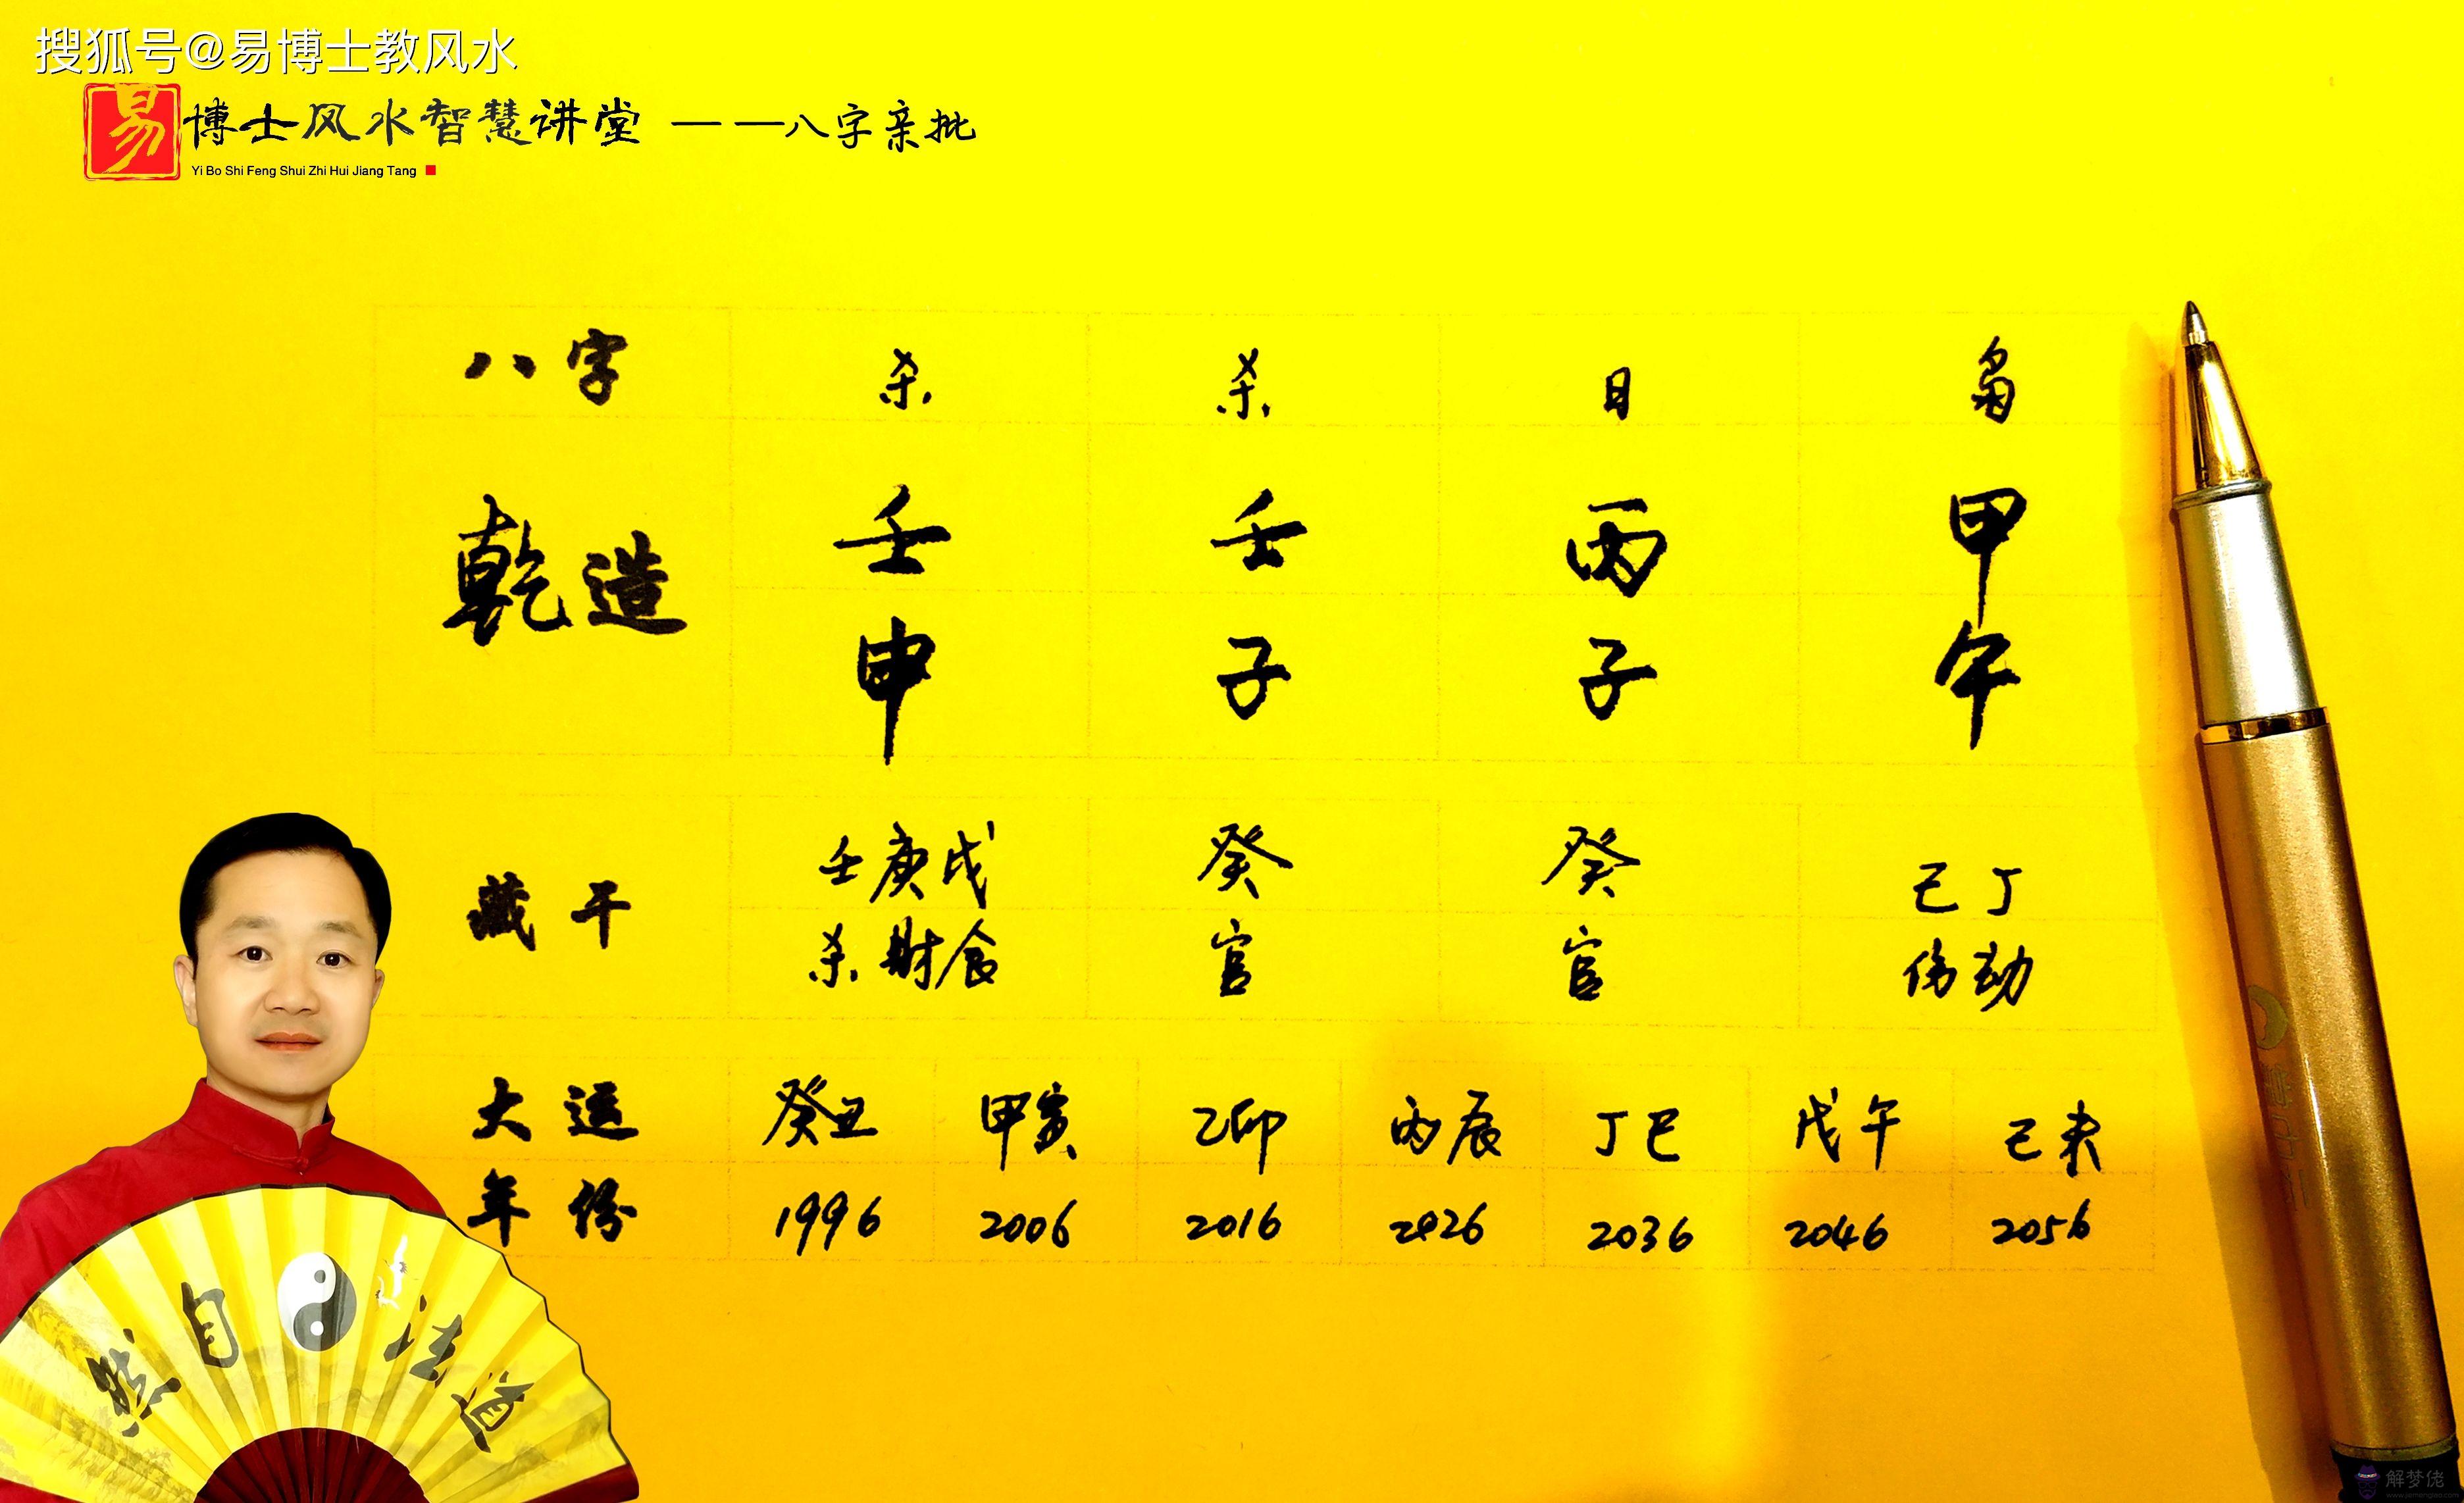 搜狐号@易博士教风水
易博士风水智慧讲堂 ——八字亲批
Yi Bo Shi Feng Shui Zhi Hui Jiang Tang
八字 杀 杀 日 枭
乾造 壬 壬 丙 甲
申 子 子 午
藏干 壬庚戊 癸 癸 己丁
杀财食 官 官 伤劫
大运 癸丑 甲寅 乙卯 丙辰 丁巳 戊午 己未
年份 1996 2006 2016 2026 2036 2046 2056
然自法道
解梦佬